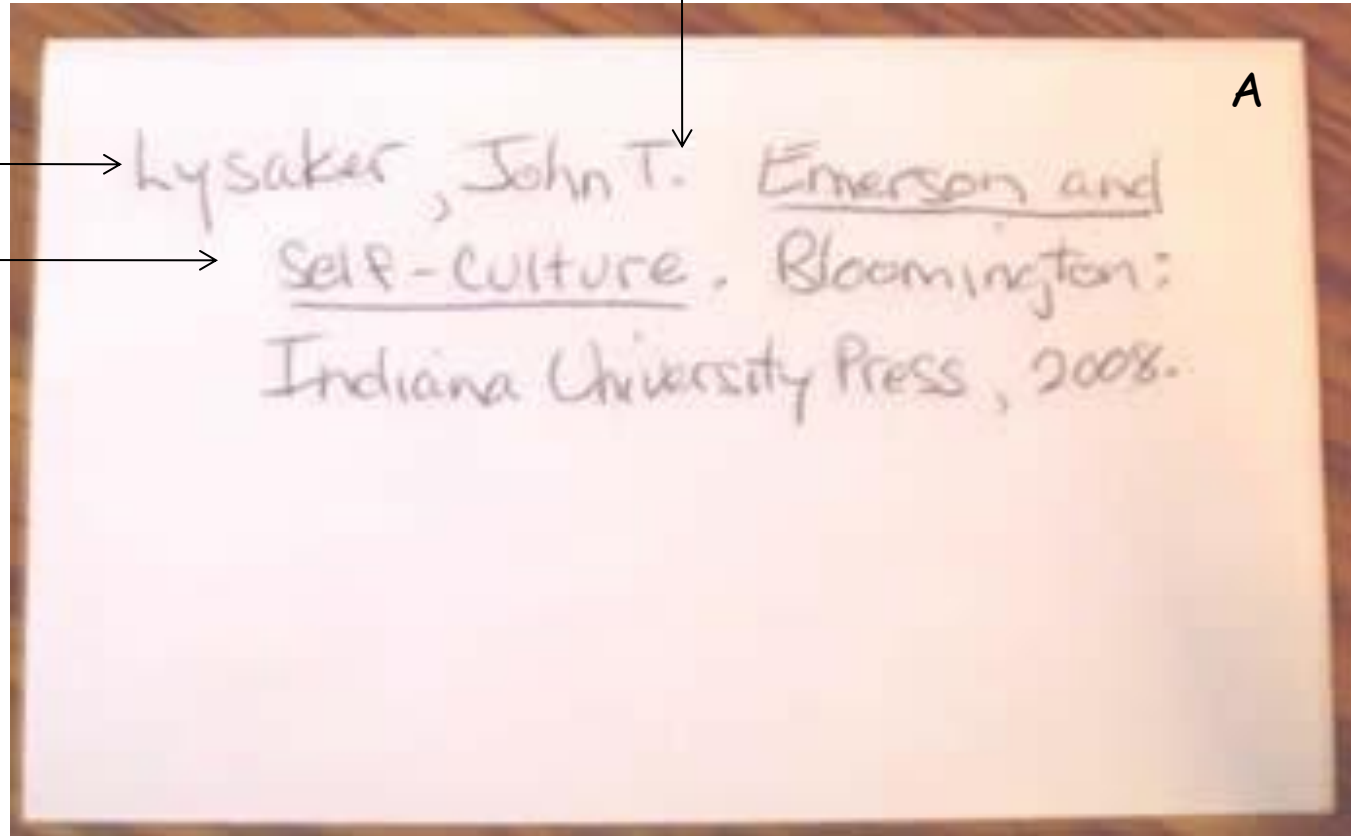 A
Lysaker, John T. Emerson and
Self-Culture. Bloomington:
Indiana University Press, 2008.